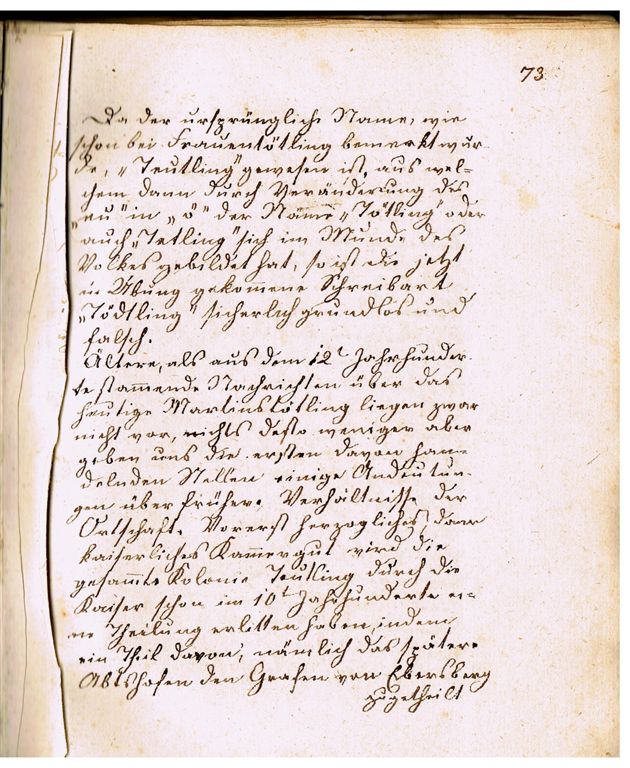 73
Da der ursprüngliche Name, wie
schon bei Frauentötling bemerkt wur-
de, „Teutling“ gewesen ist, aus wel-
chem dann durch Veränderung des
„eu“ in „ö“ der Name „Tötling“ oder
auch „Tetling“ sich im Munde des
Volkes gebildet hat, so ist die jetzt
in Übung gekommene Schreibart
„Tödtling“ sicherlich grundlos und
falsch.
Ältere, als aus dem 12t Jahrhunder-
te stammende Nachrichten über das
heutige Martinstötling liegen zwar
nicht vor, nichts desto weniger aber
geben uns die ersten davon han-
delnden Stellen einige Andeutun-
gen über frühere Verhältnisse der
Ortschaft. Vorerst herzogliches, dann
kaiserliches Kammergut wird die
gesammte Kolonie Teutling durch die
Kaiser schon im 10t Jahrhunderte ei-
ne Theilung erlitten haben, indem
ein Theil davon, nämlich das spätere
Abtshofen den Grafen von Ebersberg
zugetheilt